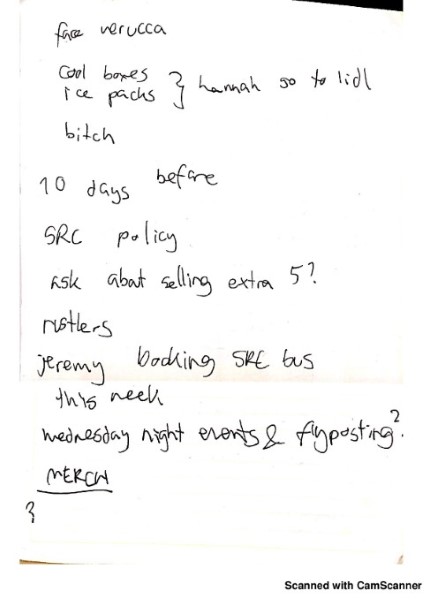 face verucca
cool boxes
ice packs } hannah go to lidl
bitch
10 days before
SRC policy
ask about selling extra 5?
rustlers
jeremy booking SRC bus
this week
wednesday night events & flyposting?
MERCH
}
Scanned with CamScanner